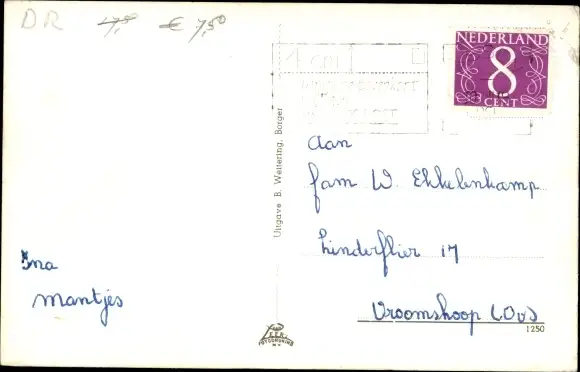 DR 47,50 € 7,50
NEDERLAND
8
CENT
4 cm
Uitgave B. Weltering, Borger
Aan
fam W. Ekkelenkamp
Linderflier 17
Vroomshoop (Ov)
Ina
Mantjes
1250